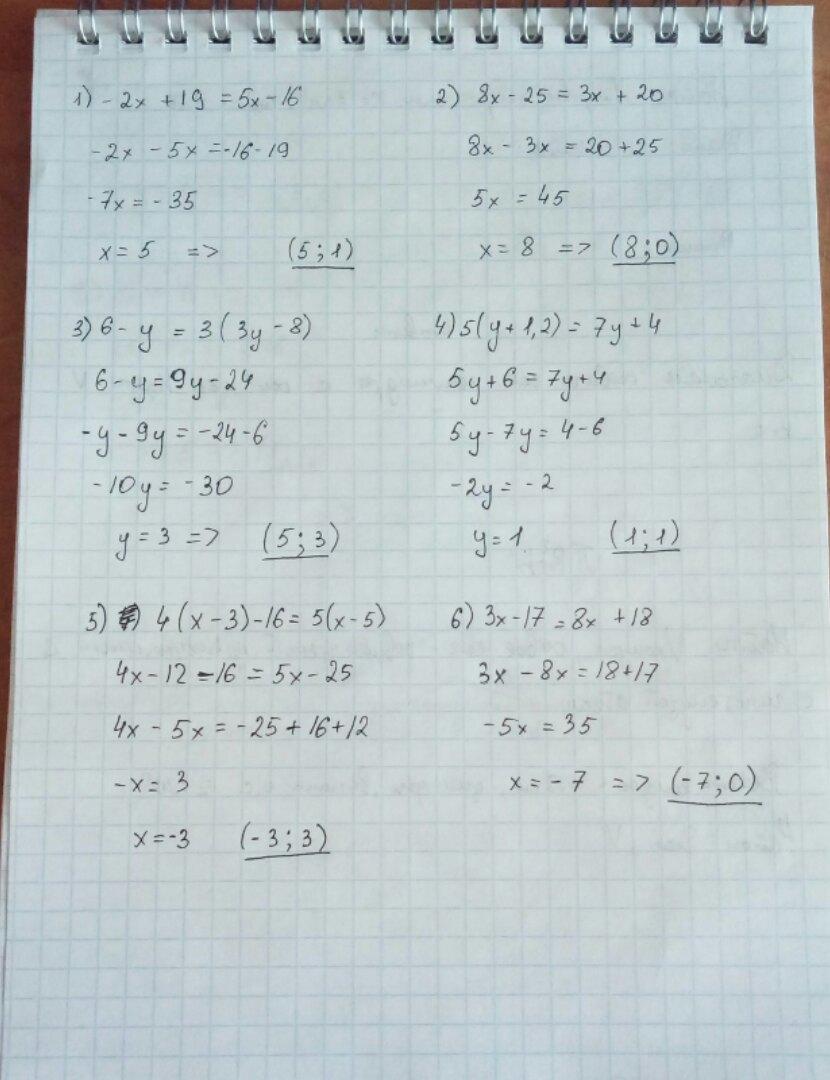 1) -2x + 19 = 5x - 16
-2x - 5x = -16 - 19
-7x = -35
x = 5 => (5; 1)
2) 8x - 25 = 3x + 20
8x - 3x = 20 + 25
5x = 45
x = 8 => (8; 0)
3) 6 - y = 3(3y - 8)
6 - y = 9y - 24
-y - 9y = -24 - 6
-10y = -30
y = 3 => (5; 3)
4) 5(y + 1,2) = 7y + 4
5y + 6 = 7y + 4
5y - 7y = 4 - 6
-2y = -2
y = 1 (1; 1)
5) 4(x - 3) - 16 = 5(x - 5)
4x - 12 - 16 = 5x - 25
4x - 5x = -25 + 16 + 12
-x = 3
x = -3 (-3; 3)
6) 3x - 17 = 8x + 18
3x - 8x = 18 + 17
-5x = 35
x = -7 => (-7; 0)